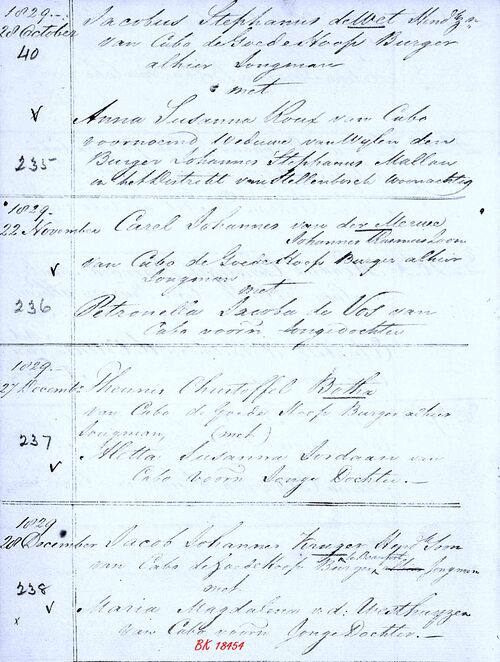 1829.-
28 October
40
Jacobus Stephanus de Wet
van Cabo de Goede Hoop Burger
alhier Jongman
met
Anna Susanna Roux van Cabo
voornoemd Weduwe van Wylen den
235
Burger Johannes Stephanus
in het District van Stellenbosch woonachtig
1829.-
22 November
Carel Johannes van der Merwe
Johannes Rasmus Zoon
van Cabo de Goede Hoop Burger alhier
Jongman
met
236
Petronella Jacoba de Vos van
Cabo voorn Jongedochter
1829.-
27 December
Theunis Christoffel Botha
van Cabo de Goede Hoop Burger alhier
Jongman, (met)
237
Aletta Susanna Jordaan van
Cabo voorn Jonge Dochter.-
1829
28 December
Jacob Johannes Kruger
van Cabo de Goede Hoop Burger Jongman
met
238
Maria Magdalena v.d: Westhuyzen
Van Cabo voorn Jonge Dochter.-
x
BK 18454